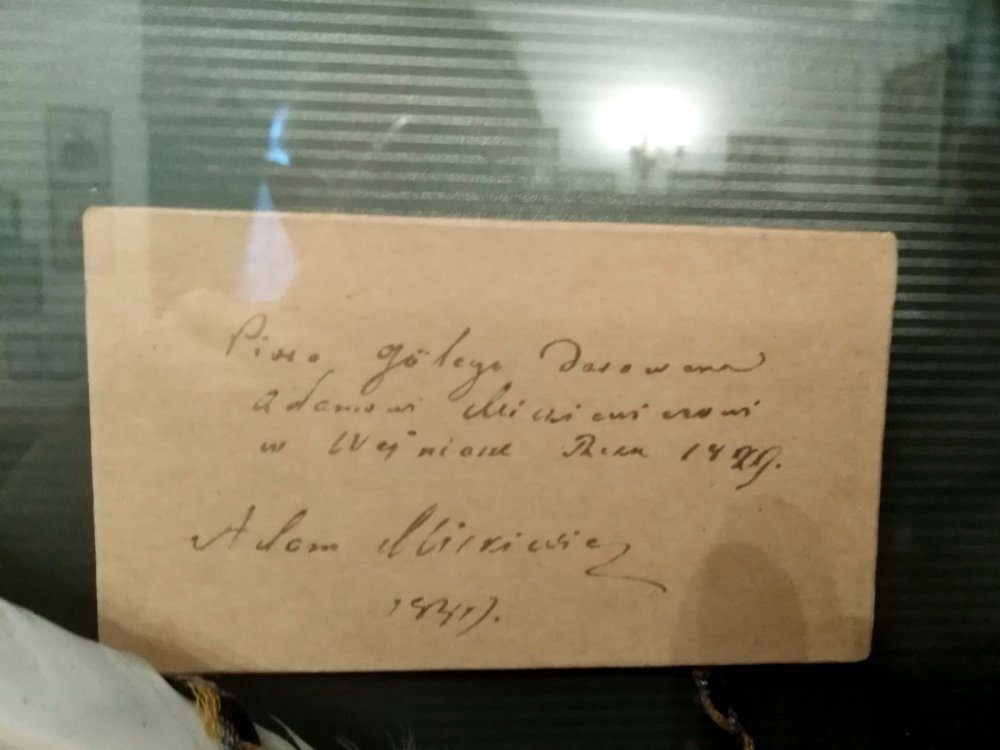 Pióro Götego Darowane
Adamowi Mickiewiczowi
w Wejmarze Roku 1829.
Adam Mickiewicz